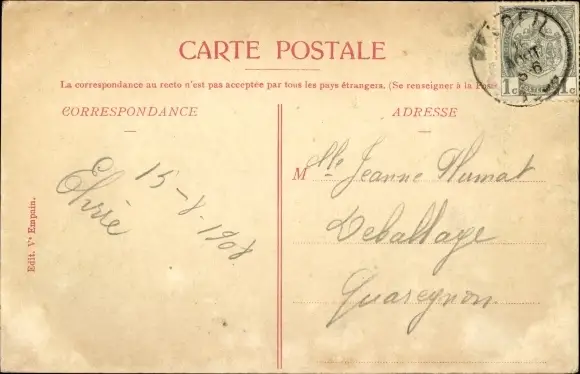 CARTE POSTALE
La correspondance au recto n'est pas acceptée par tous les pays étrangers. (Se renseigner à la Poste
CORRESPONDANCE
ADRESSE
15-8-1908
Mlle Jeanne Plumat
Deballage
Quaregnon
Edit. Vᵉ Empain.
1c 1c
AOUT